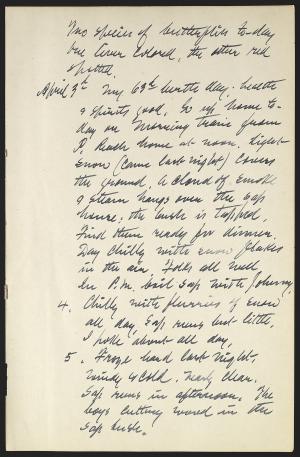 Two species of butterflies to-day
one liver colored, the other red
spotted.
April 3d My 63d birth day; health
& spirits good, Go up home to-
day on morning train from
P. Reach home at noon. Light
snow (came last night) covers
the ground, a cloud of smoke
& steam hangs over the sap
house; the bush is tapped,
find them ready for dinner.
Day chilly with snow flakes
in the air. Folks all well
In P.M. boil sap with Johnny.
4. Chilly with flurries of snow
all day, Sap runs but little,
I poke about all day,
5. Froze hard last night,
windy & cold. Nearly clear.
Sap runs in afternoon. The
boys cutting wood in the
sap bush.